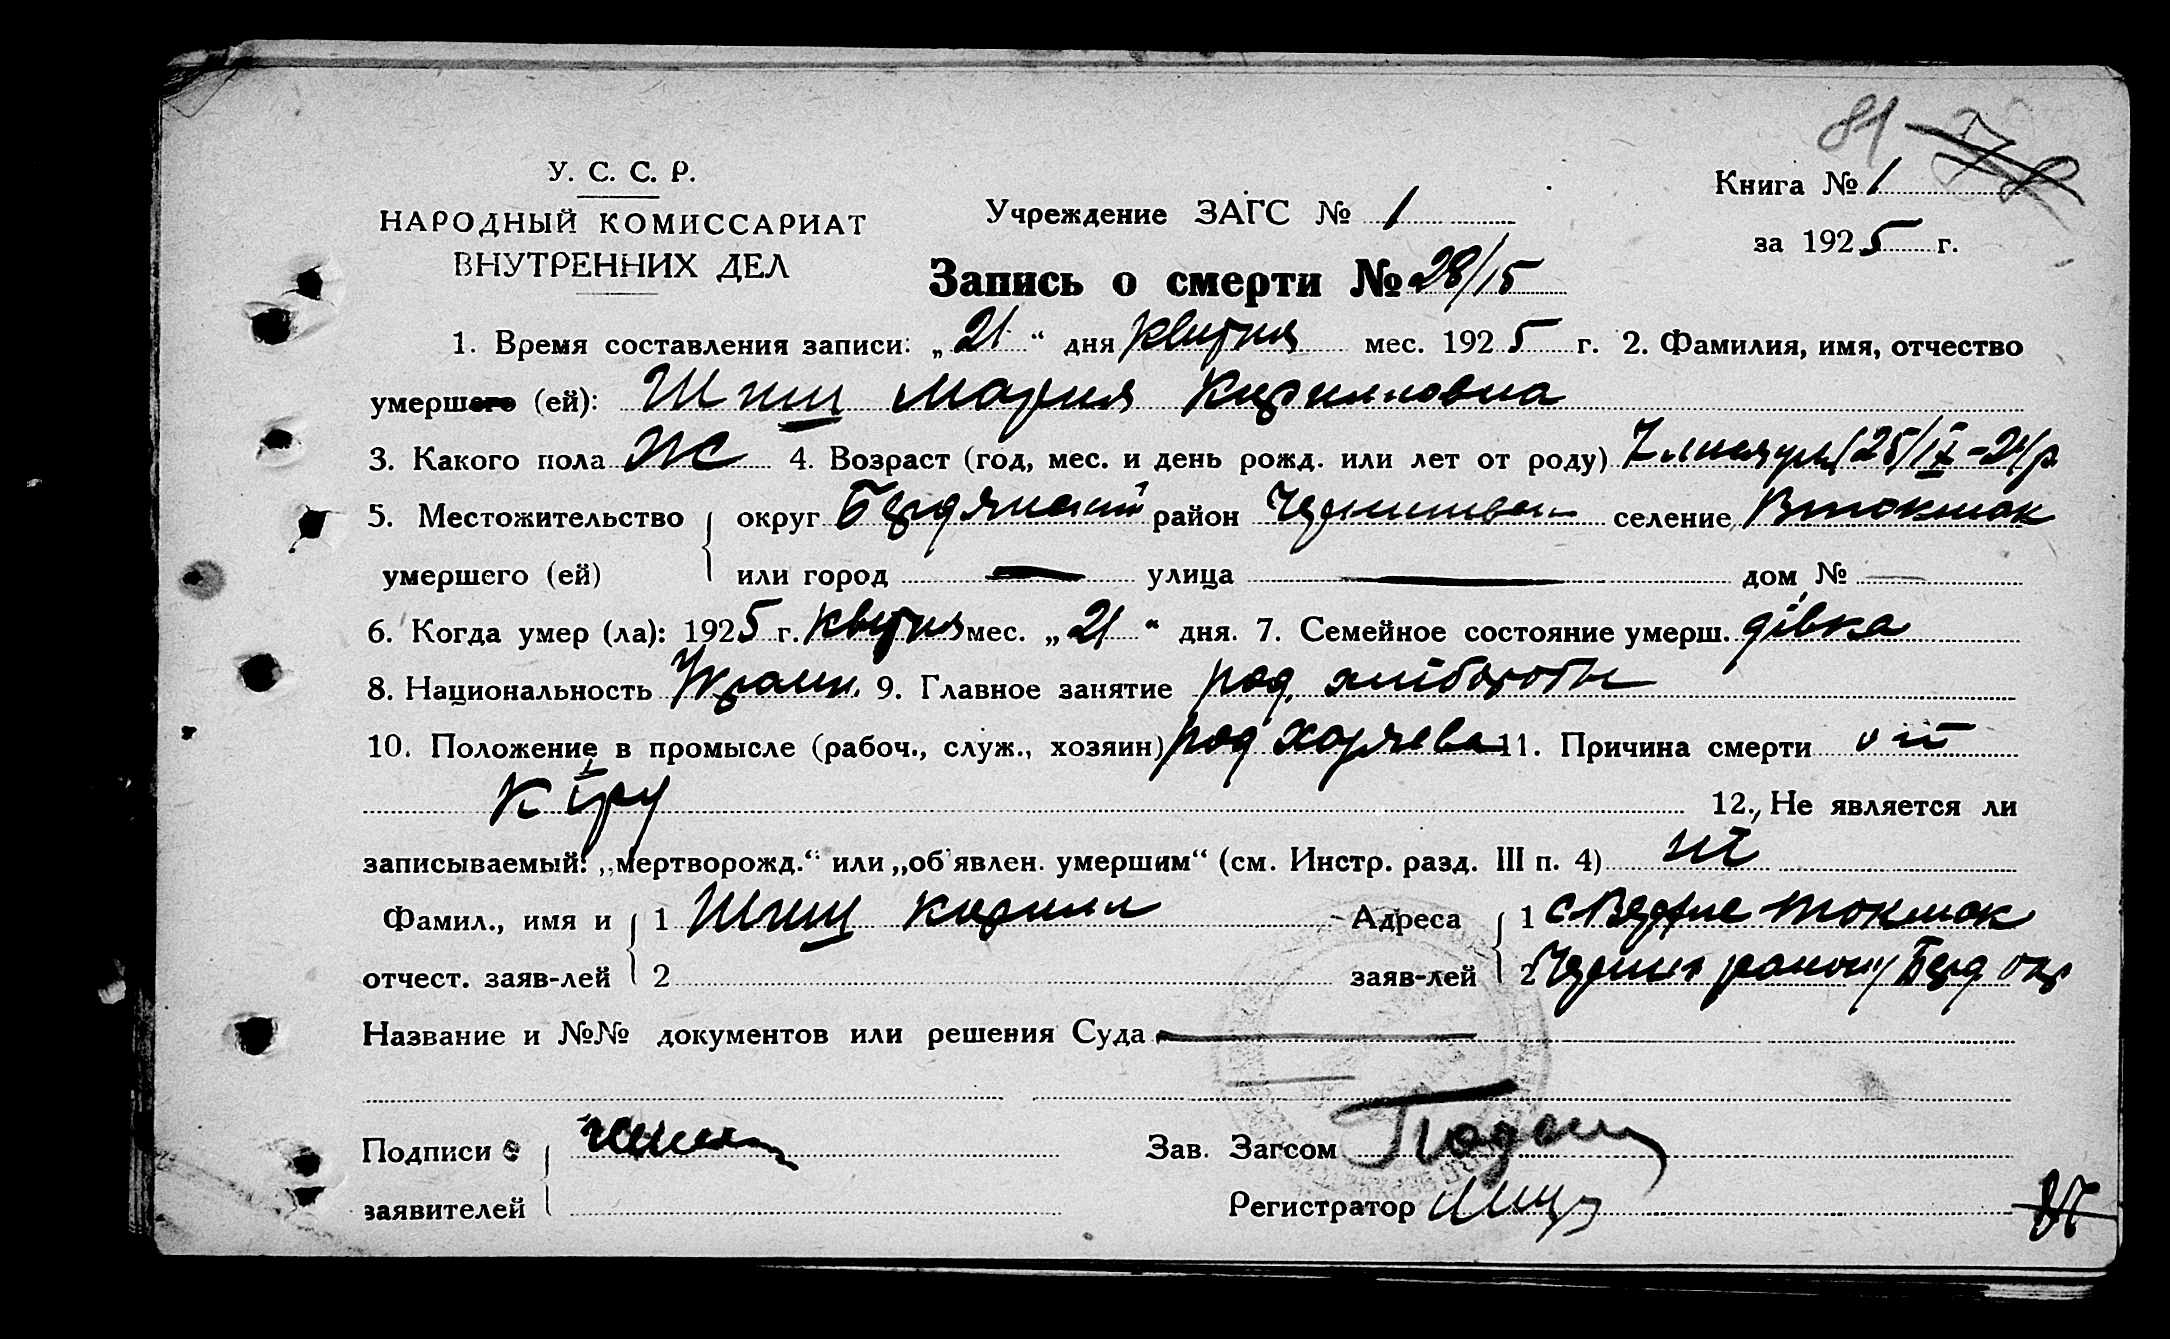 81 78
У. С. С. Р.
НАРОДНЫЙ КОМИССАРИАТ
ВНУТРЕННИХ ДЕЛ
Учреждение ЗАГС № 1
Книга № 1
за 1925 г.
Запись о смерти № 28/15
1. Время составления записи: „21“ дня квітня мес. 1925 г. 2. Фамилия, имя, отчество
умершего (ей): Шпиц Мария Кирилловна
3. Какого пола Ж 4. Возраст (год, мес. и день рожд. или лет от роду) 7 (25/IX-24 р.
5. Местожительство округ Бердянский район Черниговск селение Втокмак
умершего (ей) или город — улица — дом № —
6. Когда умер (ла): 1925 г. квітня мес. „21“ дня. 7. Семейное состояние умерш. дівка
8. Национальность Украин. 9. Главное занятие род. хліборобы
10. Положение в промысле (рабоч., служ., хозяин) род 11. Причина смерти від
кіру
12. Не является ли
записываемый: „мертворожд.“ или „об'явлен. умершим“ (см. Инстр. разд. III п. 4) ні
Фамил., имя и 1 Шпиц Кирилл Адреса 1 с Верхне Токмак
отчест. заяв-лей 2 заяв-лей 2 Черниг району Берд окр
Название и №№ документов или решения Суда —
Подписи Зав. Загсом
заявителей Регистратор